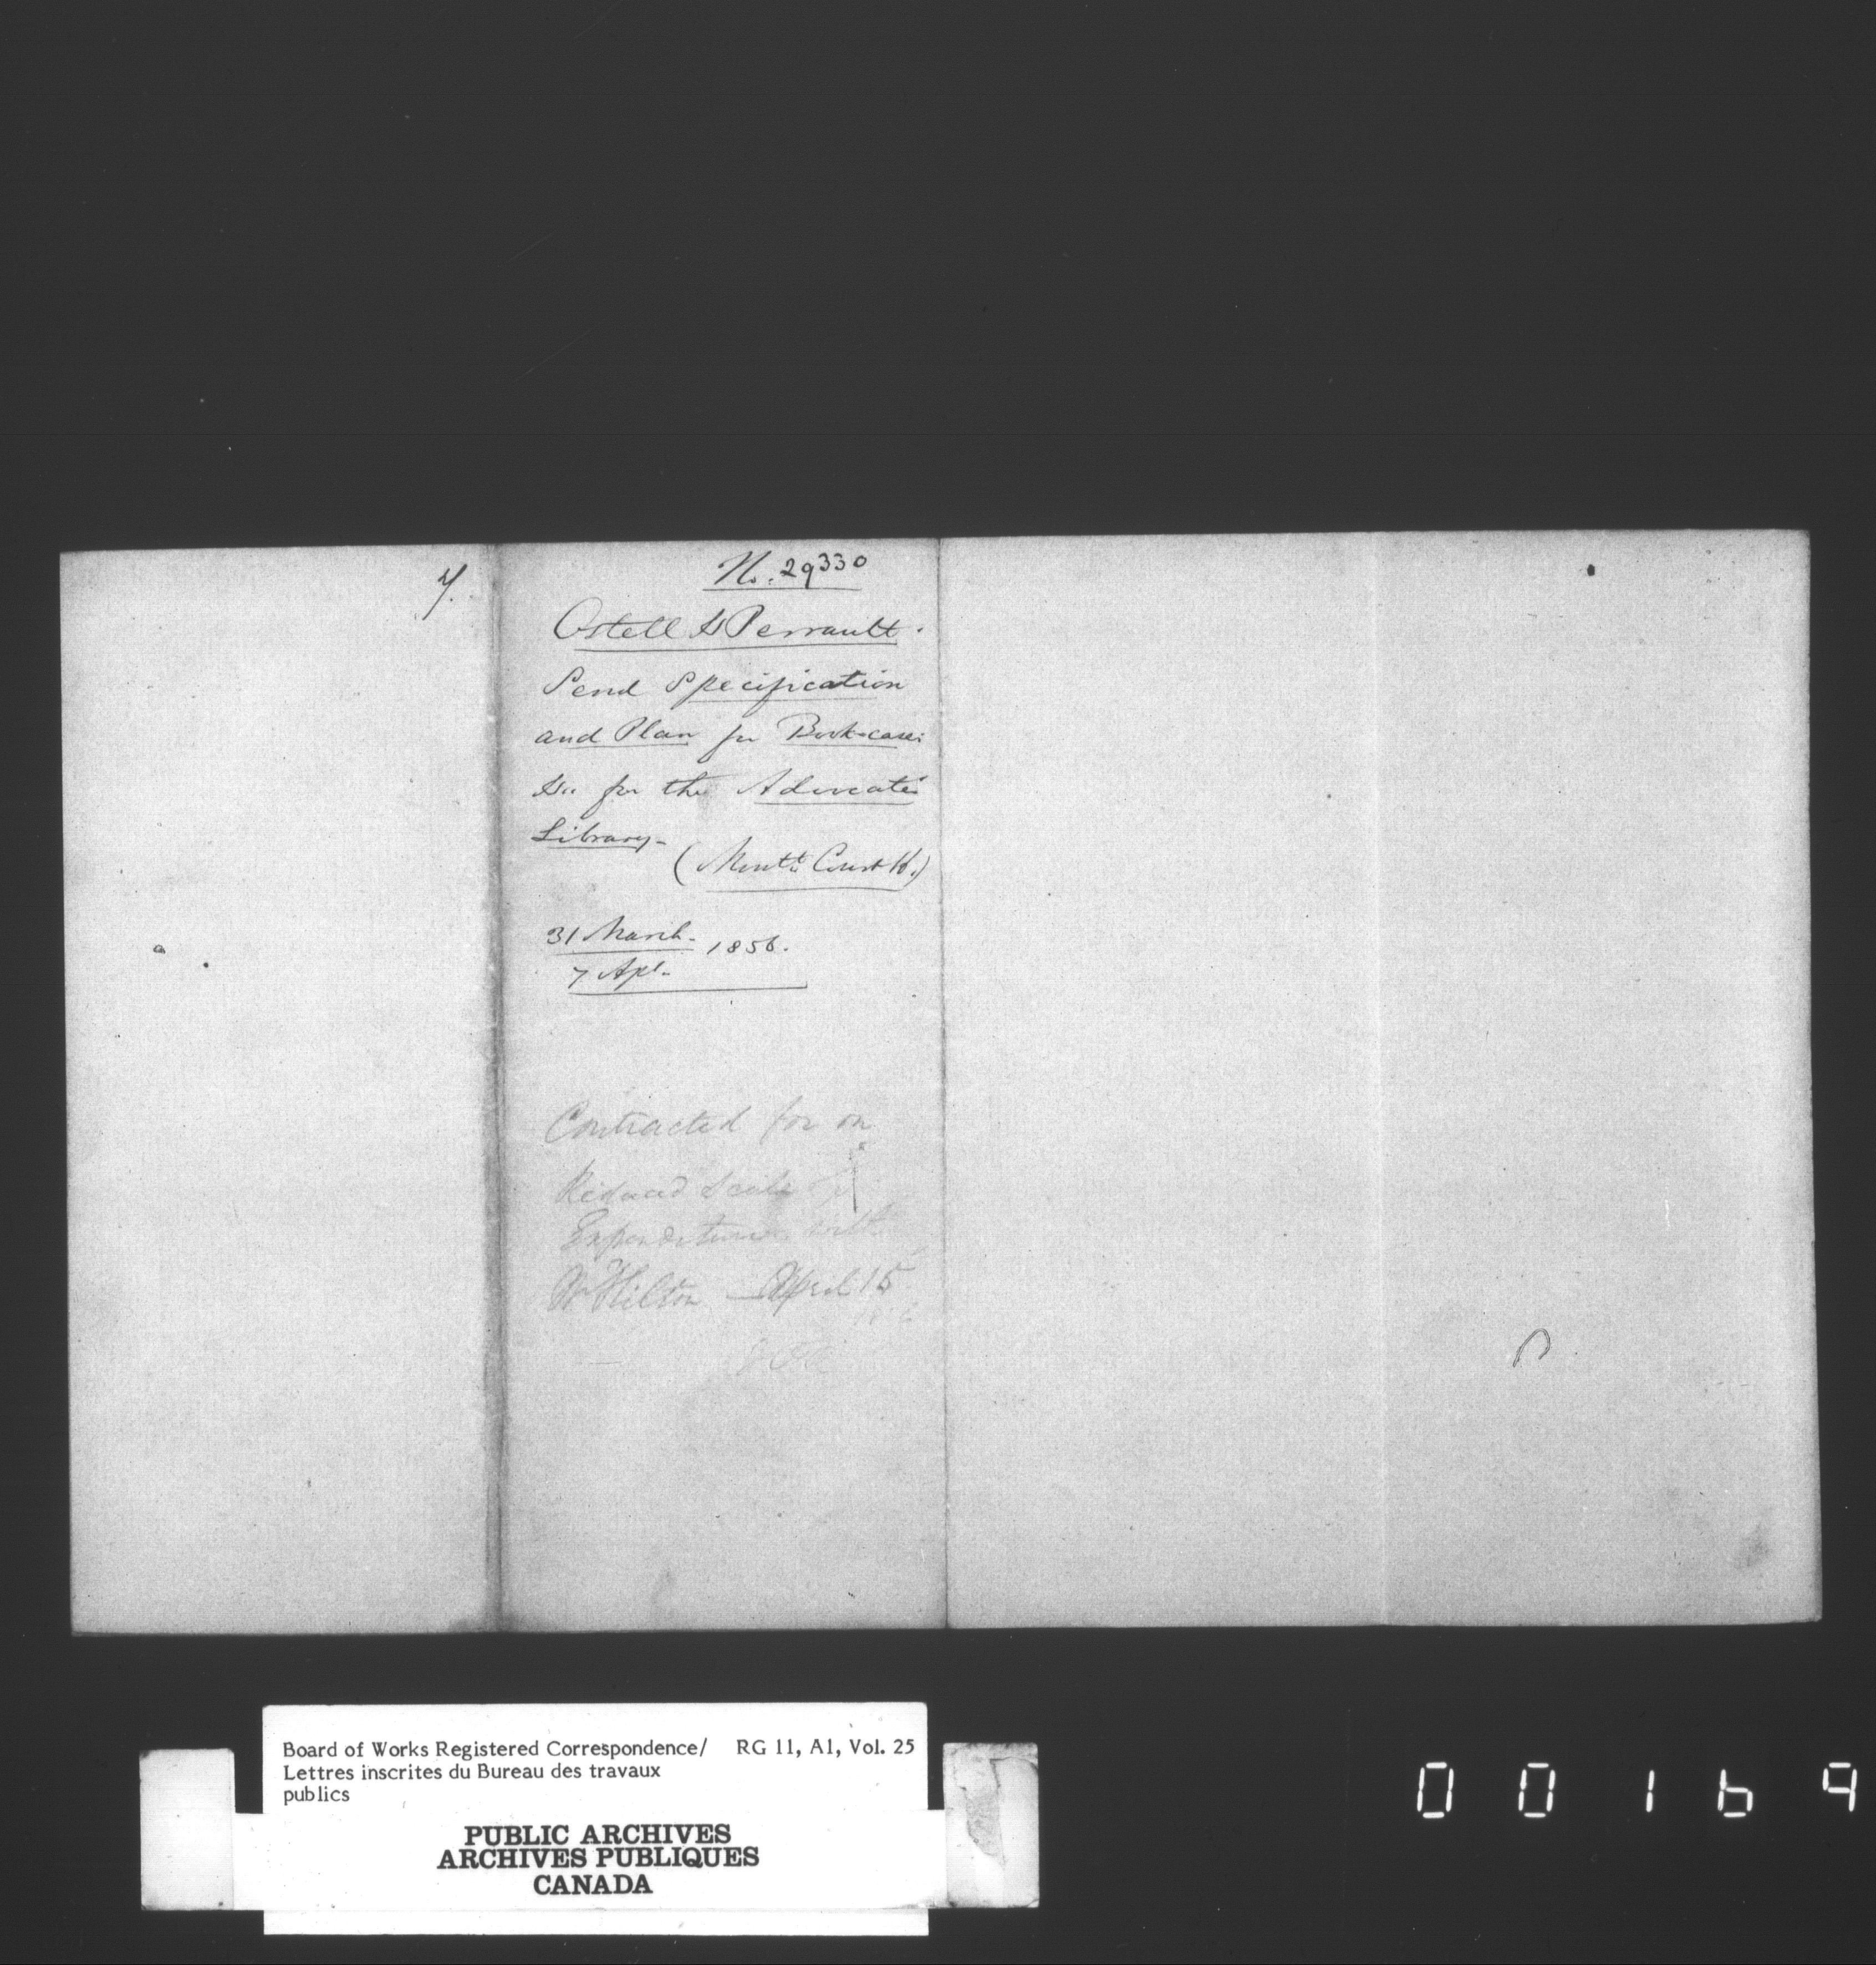 y.
No. 29330
Ostell & Perrault.
Send Specification
and Plan for Book-cases
&c. for the Advocates
Library-
(Montl. Court H.)
31 March. 1856.
7 Apl.
Contracted for on
Reduced Scale of
Expenditure with
Wm Hilton - April 15
Board of Works Registered Correspondence/ RG 11, A1, Vol. 25
Lettres inscrites du Bureau des travaux
publics
PUBLIC ARCHIVES
ARCHIVES PUBLIQUES
CANADA
00169